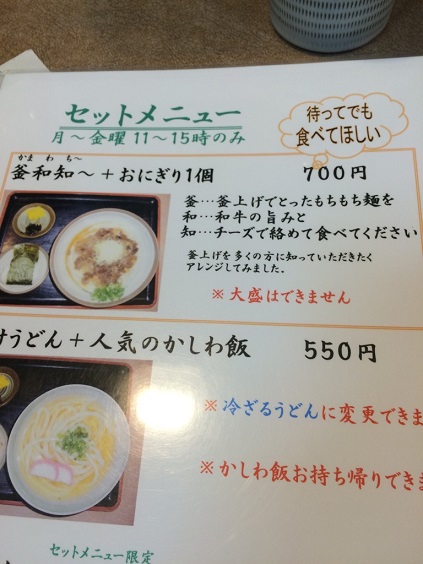 セットメニュー
月～金曜 11～15時のみ
待ってでも
食べてほしい
かま わ ち～
釜和知～＋おにぎり1個 700円
釜…釜上げでとったもちもち麺を
和…和牛の旨みと
知…チーズで絡めて食べてください
釜上げを多くの方に知っていただきたく
アレンジしてみました。
※大盛はできません
けうどん＋人気のかしわ飯 550円
※冷ざるうどんに変更できま
※かしわ飯お持ち帰りできま
セットメニュー限定